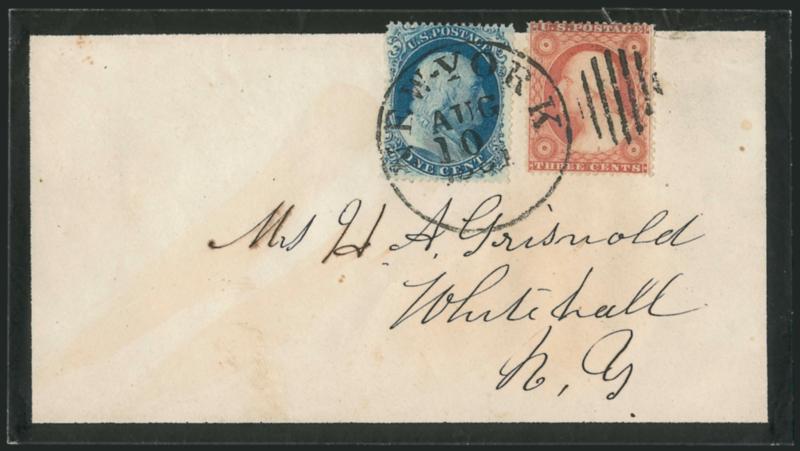 U.S. POSTAGE
ONE CENT
U.S. POSTAGE
THREE CENTS
NEW-YORK
AUG
10
1861
Mrs H A. Griswold
Whitehall
N, Y